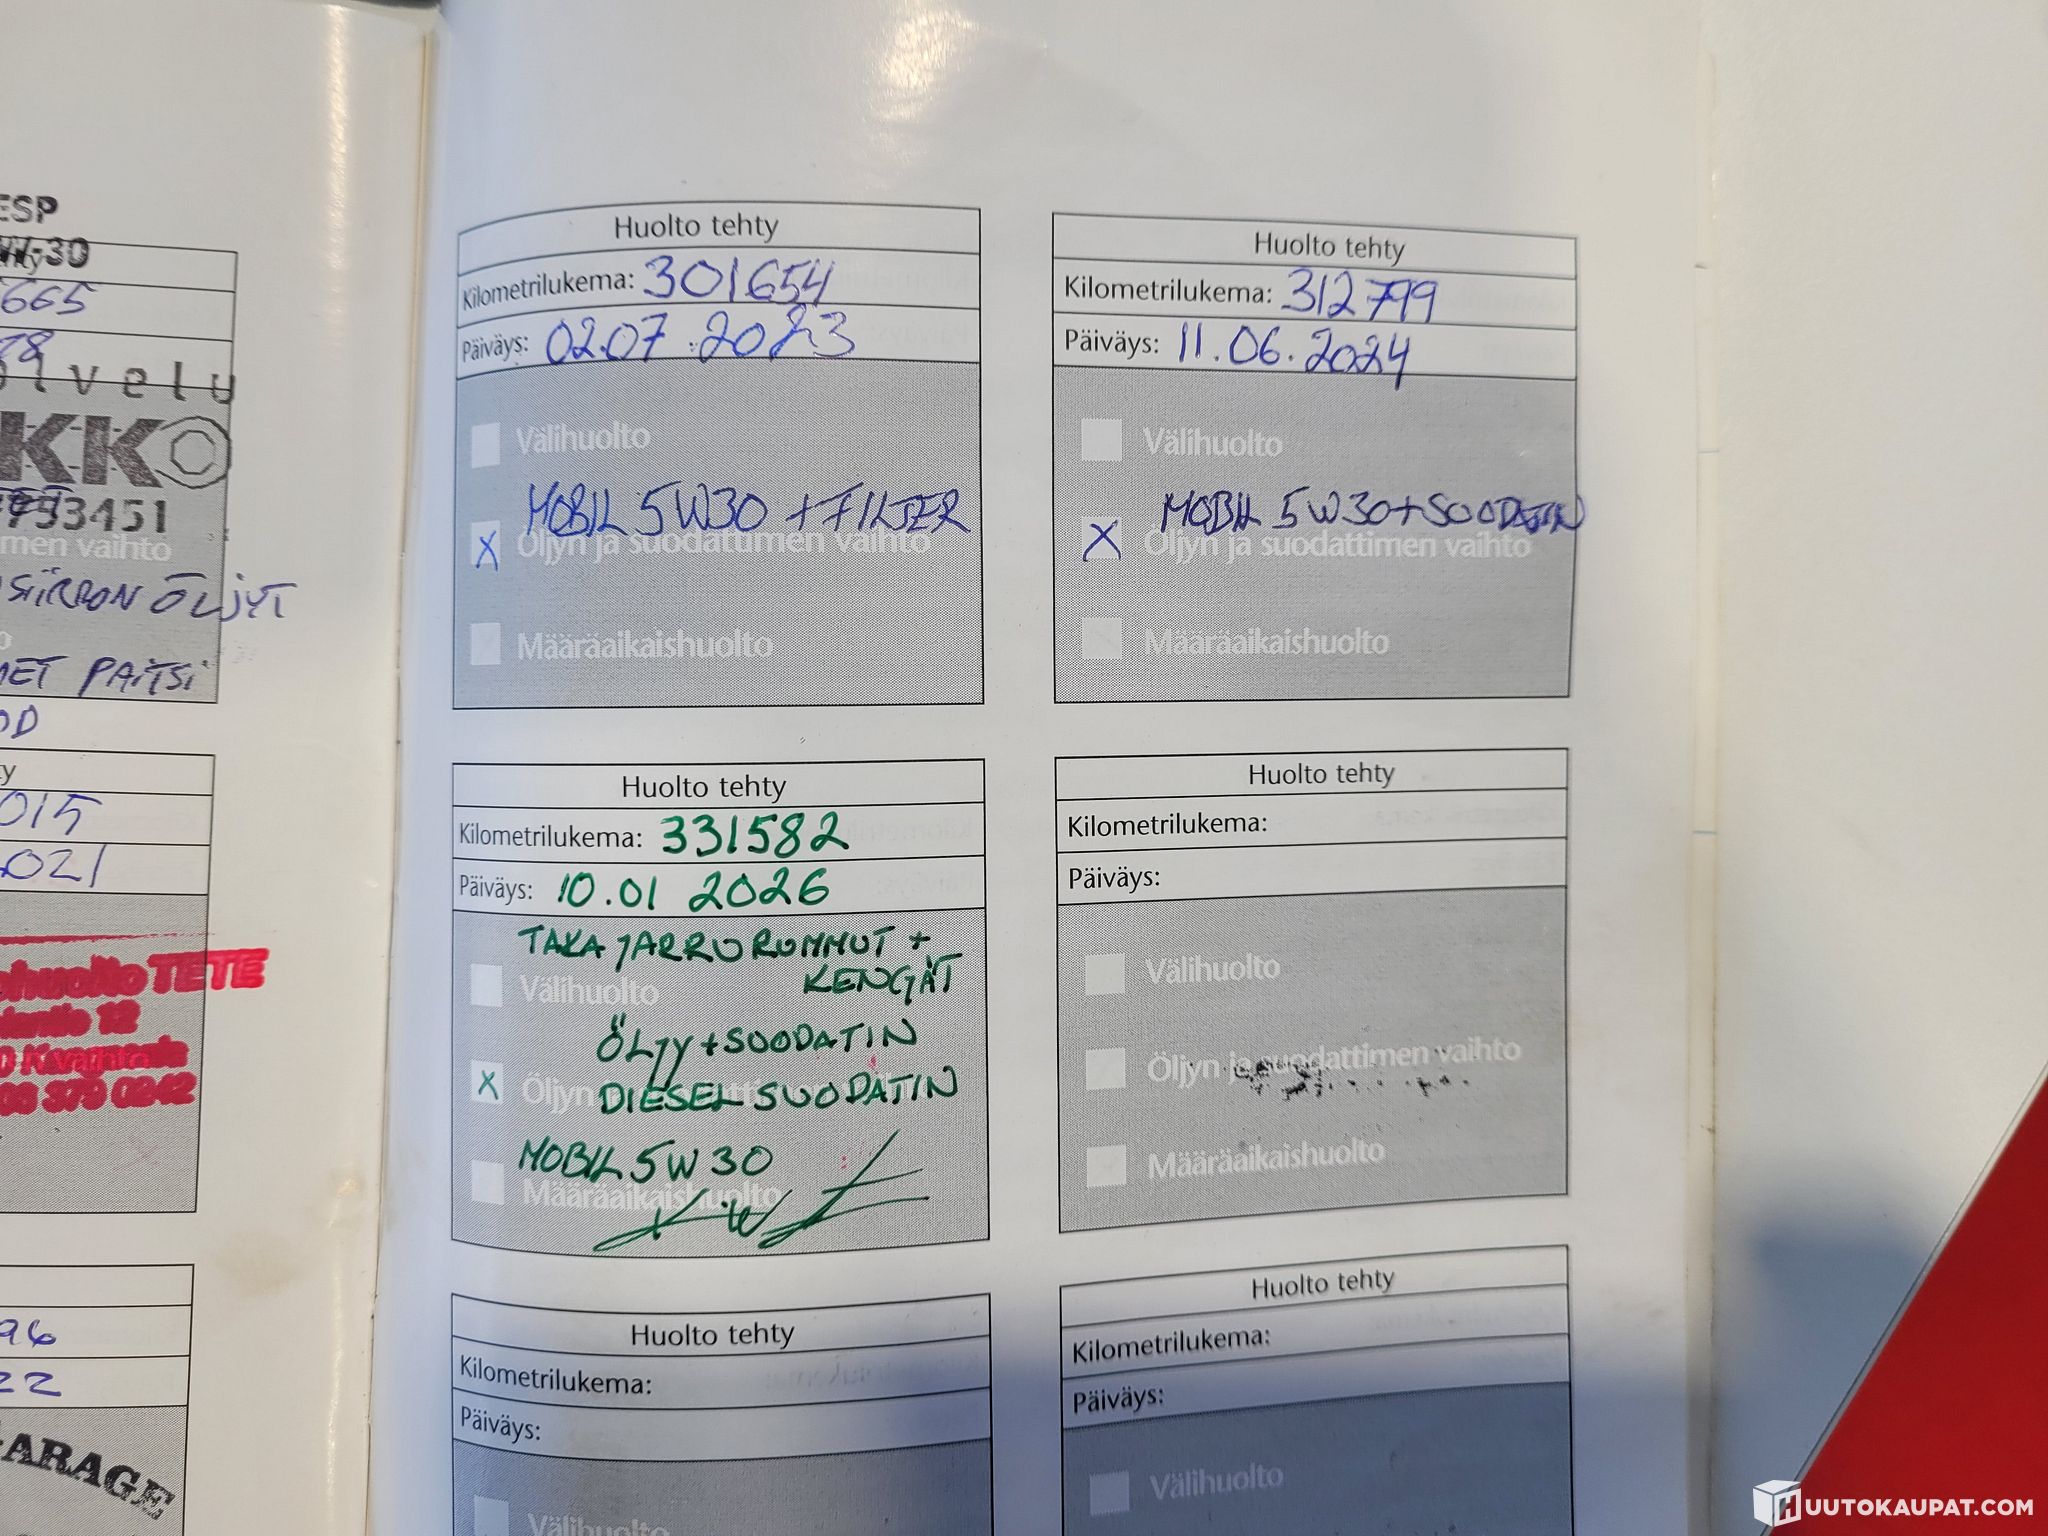 ESP
W-30
hty
665
lvelu
KKO
793451
men vaihto
SIIRRON ÖLJYT
MET PAITSI
OD
ty
015
2021
huolto TETE
12
vaihto
08 379 0242
96
22
GARAGE
Huolto tehty
Kilometrilukema: 301654
Päiväys: 02.07.2023
Välihuolto
MOBIL 5W30 + FILTER
X Öljyn ja suodattimen vaihto
Määräaikaishuolto
Huolto tehty
Kilometrilukema: 312799
Päiväys: 11.06.2024
Välihuolto
MOBIL 5W30+SUODATIN
X Öljyn ja suodattimen vaihto
Määräaikaishuolto
Huolto tehty
Kilometrilukema: 331582
Päiväys: 10.01 2026
TAKA JARRURUMMUT +
KENGÄT
Välihuolto
ÖLJY+SUODATIN
X Öljyn
DIESELSUODATIN
MOBIL 5W30
Määräaikaishuolto
Huolto tehty
Kilometrilukema:
Päiväys:
Välihuolto
Öljyn ja suodattimen vaihto
Määräaikaishuolto
Huolto tehty
Kilometrilukema:
Päiväys:
Välihuolto
Huolto tehty
Kilometrilukema:
Päiväys:
Välihuolto
HUUTOKAUPAT.COM